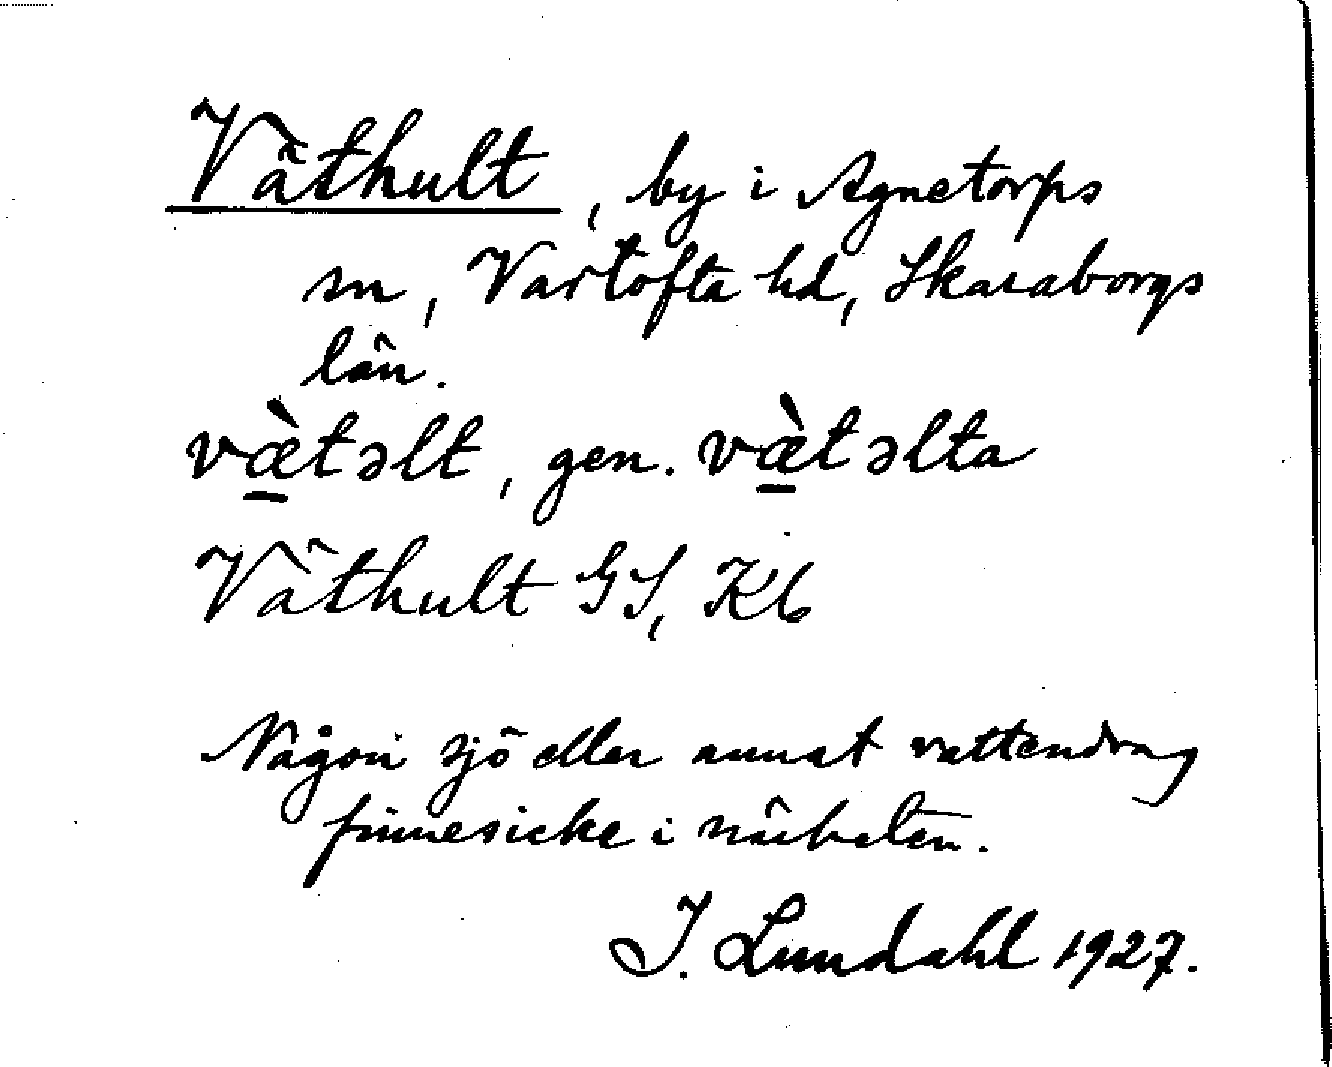 Väthult, by i Agnetorps
sn, Vartofta hd, Skaraborgs
län.
væ̠̀təlt, gen. væ̠̀təlta
Väthult GS, Kb
Någon sjö eller annat vattendrag
finnes icke i närheten.
I. Lundahl 1927.